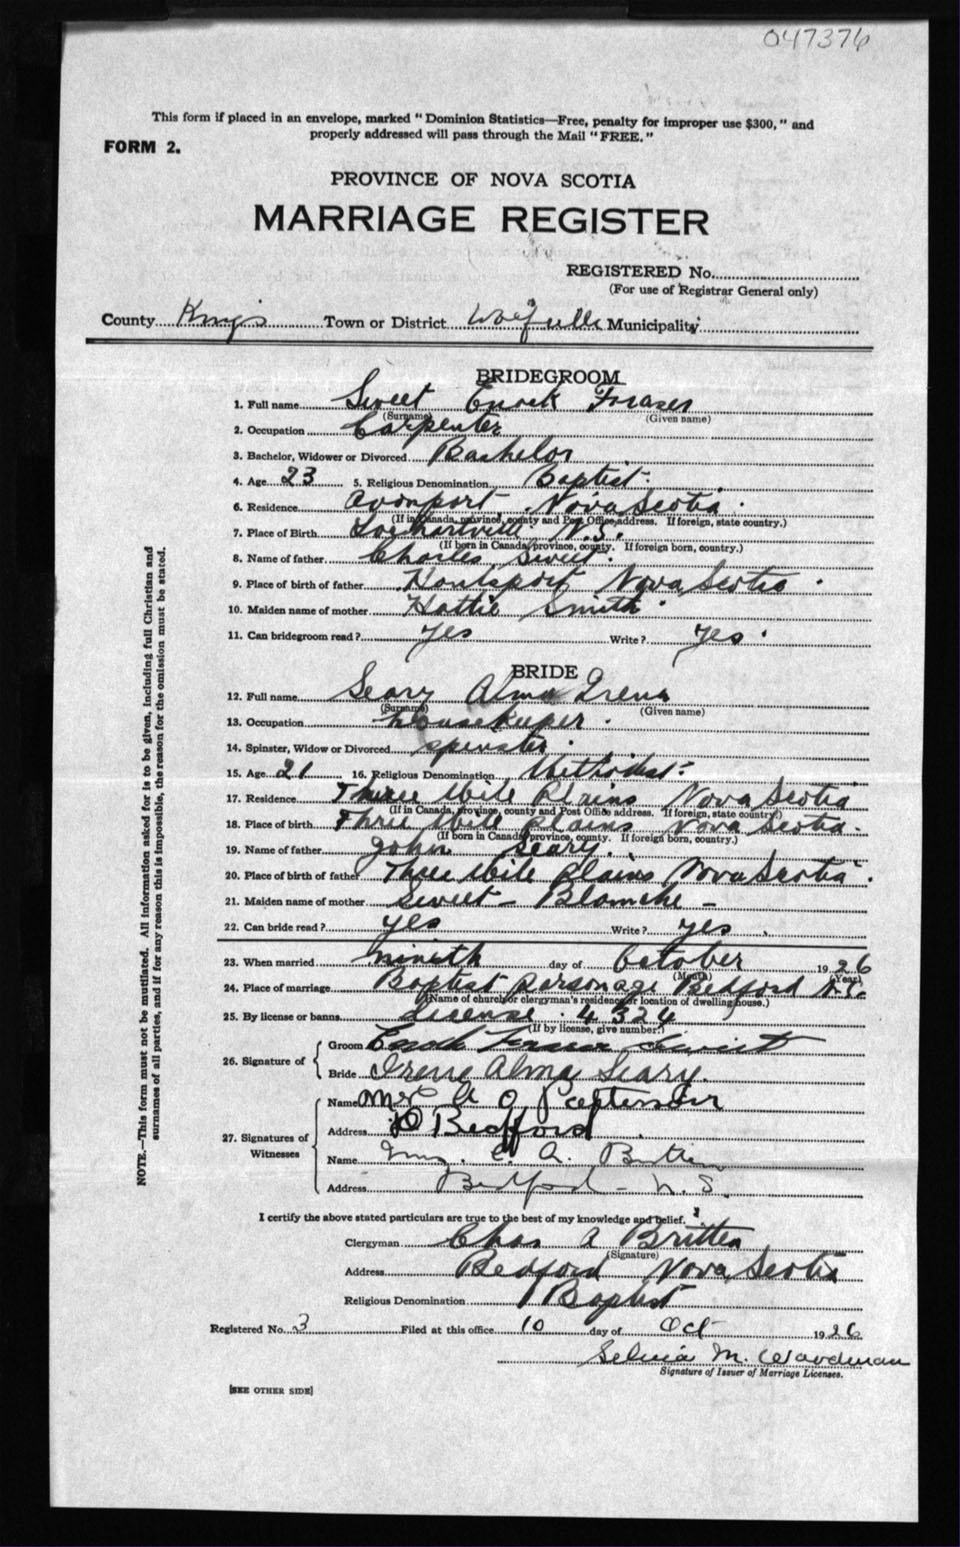 047376
This form if placed in an envelope, marked "Dominion Statistics—Free, penalty for improper use $300," and
properly addressed will pass through the Mail "FREE."
FORM 2.
PROVINCE OF NOVA SCOTIA
MARRIAGE REGISTER
REGISTERED No.
(For use of Registrar General only)
County Kings Town or District Wolfville Municipality
BRIDEGROOM
1. Full name Sweet Enock Fraser
(Surname) (Given name)
2. Occupation Carpenter
3. Bachelor, Widower or Divorced Bachelor
4. Age 23 5. Religious Denomination Baptist
6. Residence Avonport Nova Scotia
(If in Canada, province, county and Post Office address. If foreign, state country.)
7. Place of Birth Lockhartville N.S.
(If born in Canada, province, county. If foreign born, country.)
8. Name of father Charles Sweet
9. Place of birth of father Hantsport Nova Scotia
10. Maiden name of mother Hattie Smith
11. Can bridegroom read? yes Write? yes
BRIDE
12. Full name Seary Alma Irena
(Surname) (Given name)
13. Occupation housekeeper
14. Spinster, Widow or Divorced spinster
15. Age 21 16. Religious Denomination Methodist
17. Residence Three Mile Plains Nova Scotia
(If in Canada, province, county and Post Office address. If foreign, state country.)
18. Place of birth Three Mile Plains Nova Scotia
(If born in Canada, province, county. If foreign born, country.)
19. Name of father John Seary
20. Place of birth of father Three Mile Plains Nova Scotia
21. Maiden name of mother Sweet - Blanche -
22. Can bride read? yes Write? yes
23. When married nineth day of October 1926
(Month) (Year)
24. Place of marriage Baptist Parsonage Bedford N.S.
(Name of church or clergyman's residence or location of dwelling house.)
25. By license or banns License 4324
(If by license, give number.)
26. Signature of
Groom Enock Fraser Sweet
Bride Irene Alma Seary.
27. Signatures of Witnesses
Name A O
Address Bedford
Name C. A. Britten
Address Bedford - N.S.
I certify the above stated particulars are true to the best of my knowledge and belief.
Clergyman Chas A Britten
(Signature)
Address Bedford Nova Scotia
Religious Denomination Baptist
Registered No. 3 Filed at this office 10 day of Oct 1926
M. Woodman
Signature of Issuer of Marriage Licenses.
[SEE OTHER SIDE]
NOTE.—This form must not be mutilated. All information asked for is to be given, including full Christian and
surnames of all parties, and if for any reason this is impossible, the reason for the omission must be stated.